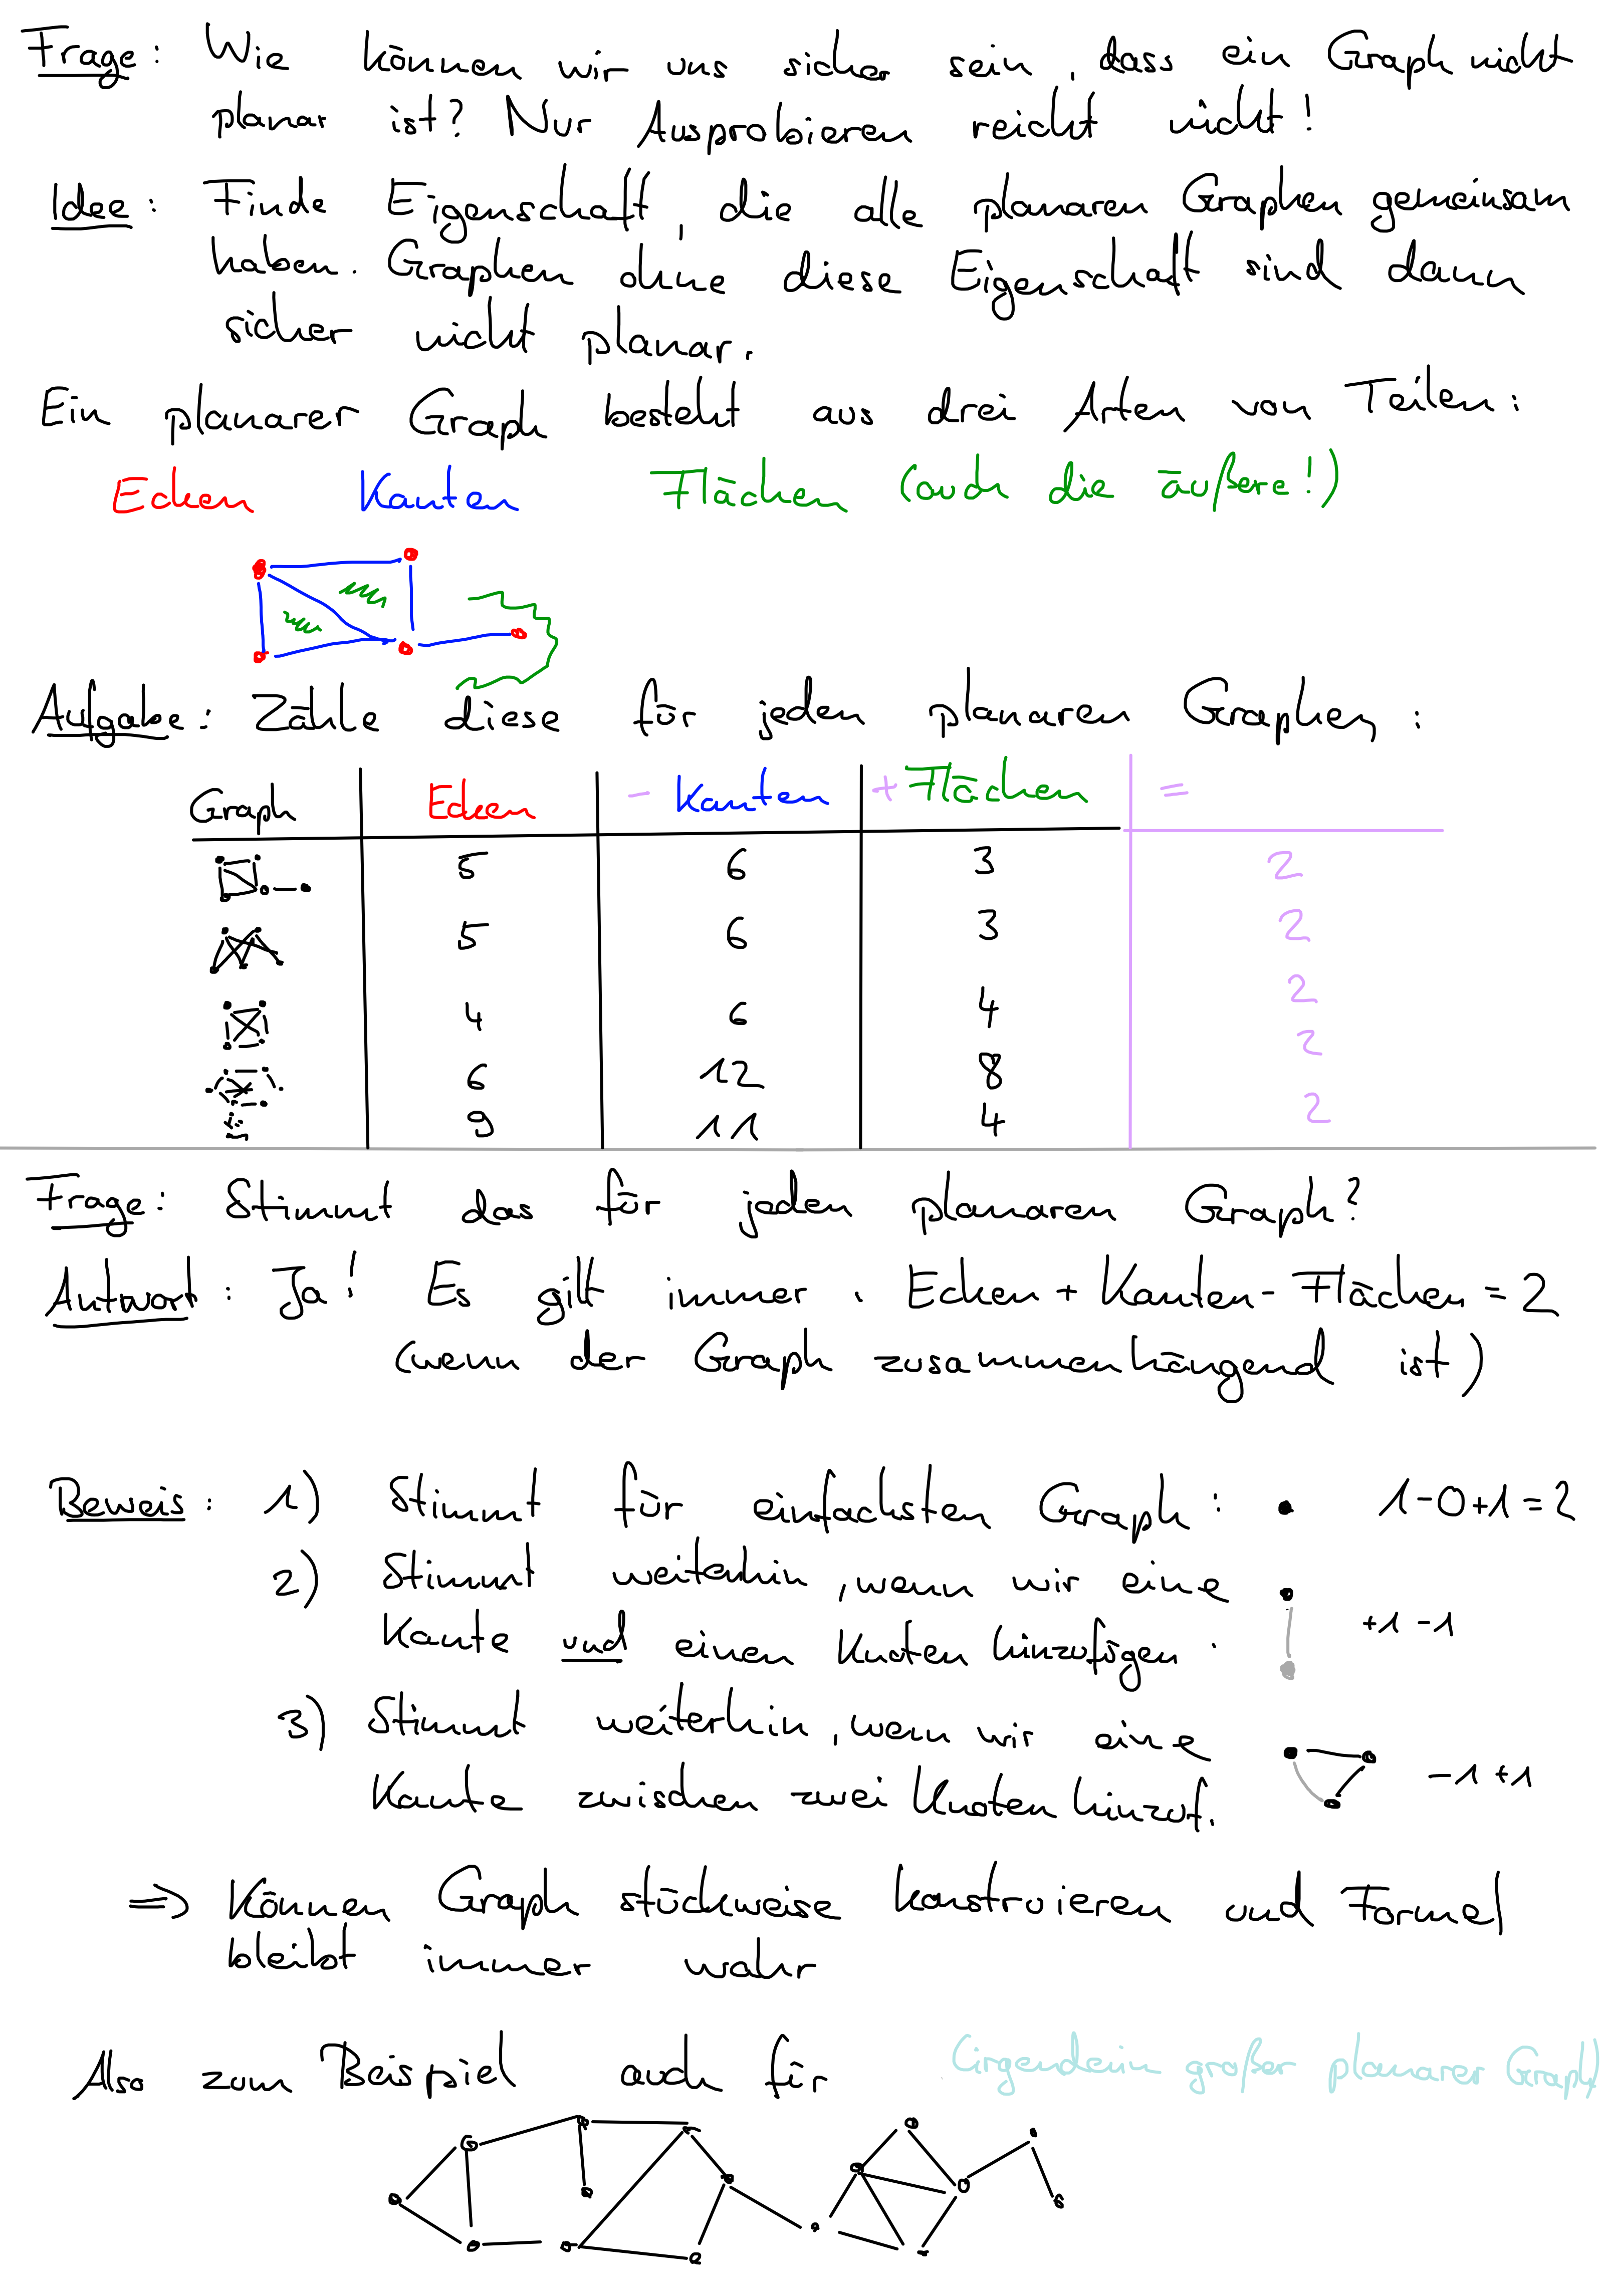 Frage: Wie können wir uns sicher sein, dass ein Graph nicht
planar ist? Nur Ausprobieren reicht nicht!
Idee: Finde Eigenschaft, die alle planaren Graphen gemeinsam
haben. Graphen ohne diese Eigenschaft sind dann
sicher nicht planar.
Ein planarer Graph besteht aus drei Arten von Teilen:
Ecken Kanten Flächen (auch die äußere!)
Aufgabe: Zähle diese für jeden planaren Graphen:
Graph Ecken - Kanten + Flächen =
5 6 3 2
5 6 3 2
4 6 4 2
6 12 8 2
9 11 4 2
Frage: Stimmt das für jeden planaren Graph?
Antwort: Ja! Es gilt immer: Ecken + Kanten - Flächen = 2
(wenn der Graph zusammenhängend ist)
Beweis: 1) Stimmt für einfachsten Graph: 1-0+1=2
2) Stimmt weiterhin, wenn wir eine
Kante und einen Knoten hinzufügen. +1 -1
3) Stimmt weiterhin, wenn wir eine
Kante zwischen zwei Knoten hinzuf. -1 +1
⇒ Können Graph stückweise konstruieren und Formel
bleibt immer wahr
Also zum Beispiel auch für (irgendein großer planarer Graph)